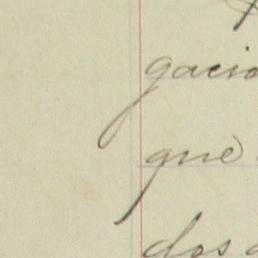 gacio
que
dos